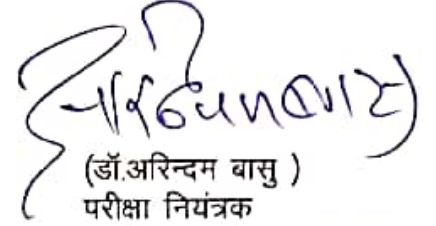 (डॉ.अरिन्दम बासु )
परीक्षा नियंत्रक